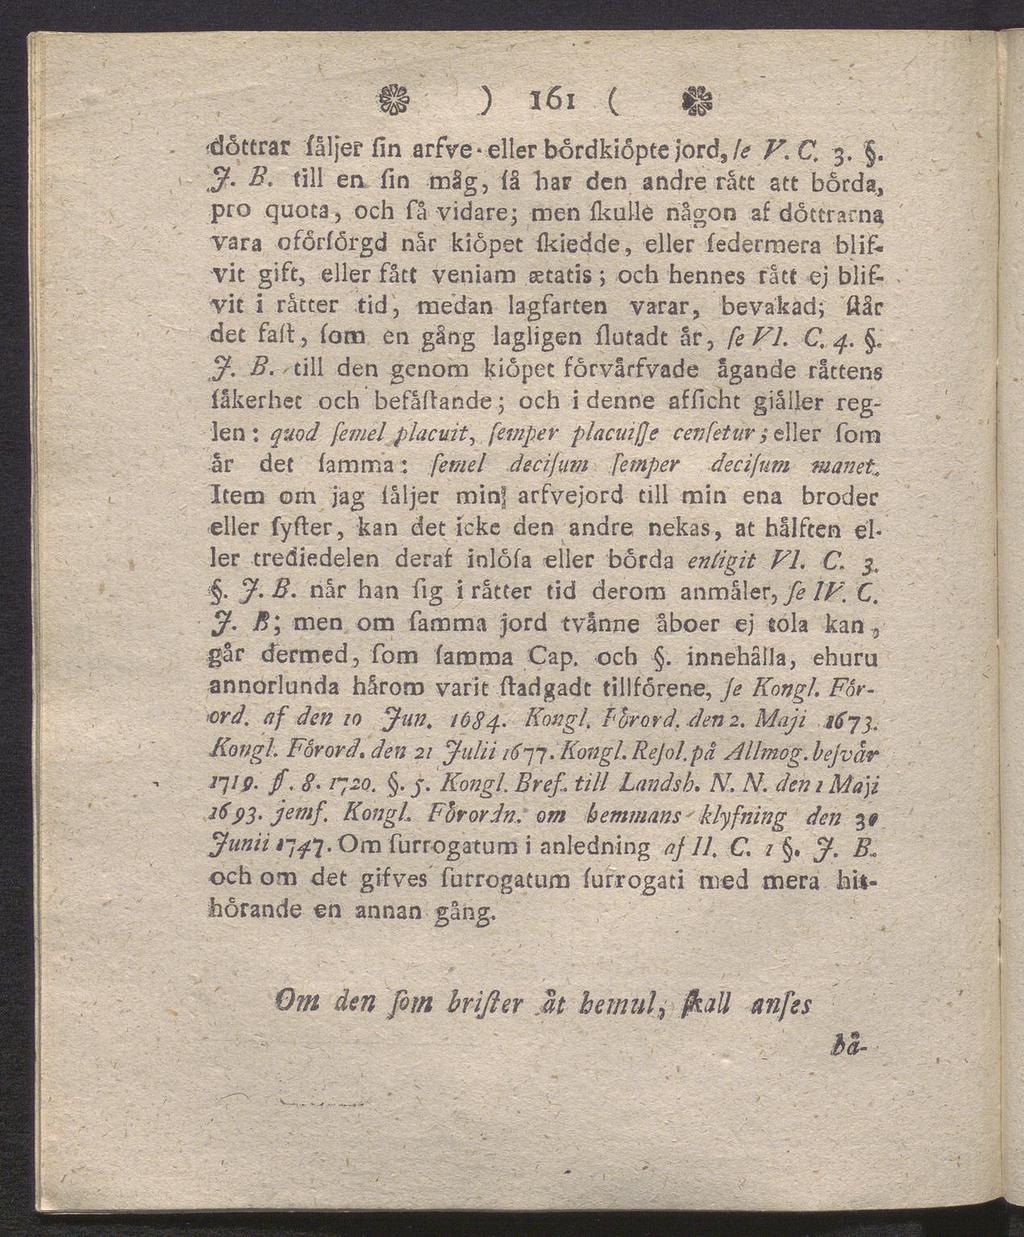 ) 161 (
dóttrar ſåljer ſin arfve- eller bórdkiópte jord, ſe V. C. 3. §.
J. B. till en ſin måg, ſå har den andre rått att bórda,
pro quota, och ſå vidare; men ſkulle någon af dóttrarna
vara ofórſórgd når kiópet ſkiedde, eller ſedermera blif-
vit gift, eller fått veniam ætatis; och hennes rått ej blif-
vit i råtter tid, medan lagfarten varar, bevakad; ſtår
det faſt, ſom en gång lagligen ſlutadt år, ſe VI. C. 4. §.
J. B. till den genom kiópet fórvårfvade ågande råttens
ſåkerhet och befåſtande; och i denne afſicht giåller reg-
len: quod ſemel placuit, ſemper placuiſſe cenſetur; eller ſom
år det ſamma: ſemel deciſum ſemper deciſum manet.
Item om jag ſåljer min arfvejord till min ena broder
eller ſyſter, kan det icke den andre nekas, at hålften el-
ler trediedelen deraf inlóſa eller bórda enligit VI. C. 3.
§. J. B. når han ſig i råtter tid derom anmåler, ſe IV. C.
J. B; men om ſamma jord tvånne åboer ej tola kan,
går dermed, ſom ſamma Cap. och §. innehålla, ehuru
annorlunda hårom varit ſtadgadt tillfórene, ſe Kongl. Fór-
ord. af den 10 Jun. 1684. Kongl. Fórord. den 2. Maji 1673.
Kongl. Fórord. den 21 Julii 1677. Kongl. Reſol. på Allmog. beſvår
1719. §. 8. 1720. §. 5. Kongl. Bref. till Landsh. N. N. den 1 Maji
1693. jemf. Kongl. Fórordn. om hemmans klyfning den 30
Junii 1747. Om ſurrogatum i anledning af II. C. 1 §. J. B.
och om det gifves ſurrogatum ſurrogati med mera hit-
hórande en annan gång.
Om den ſom briſter åt hemul, ſkall anſes
bå-